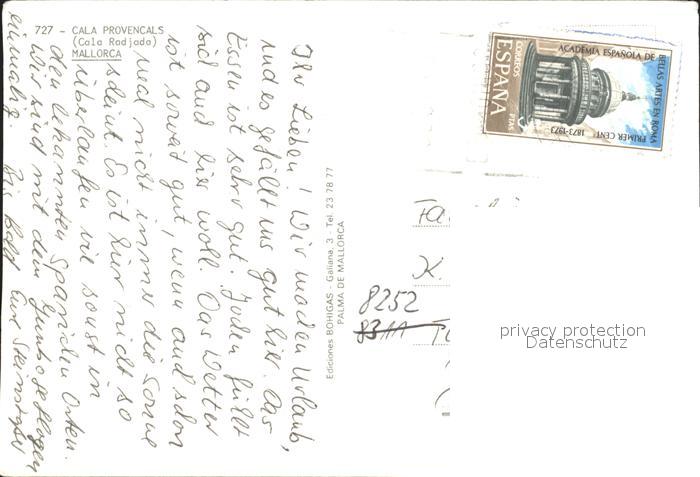 727 - CALA PROVENCALS
(Cala Radjada)
MALLORCA
Ihr Lieben! Wir machen Urlaub,
und es gefällt uns gut hier. Das
Essen ist sehr gut. Jochen fühlt
sich auch hier wohl. Das Wetter
ist soweit gut, wenn auch schon
mal nicht immer die Sonne
scheint. Es ist hier nicht so
überlaufen wie sonst in
den bekannten Spanischen Orten.
Wir sind mit dem Jumbo geflogen
einmalig. Bis bald Eure
Ediciones BOHIGAS - Galiana, 3 - Tel. 23 78 77
PALMA DE MALLORCA
CORREOS
ESPAÑA
PTAS
ACADEMIA ESPAÑOLA DE
BELLAS ARTES EN ROMA
PRIMER CENT. 1873-1973
Fa
K.
8252
privacy protection
Datenschutz